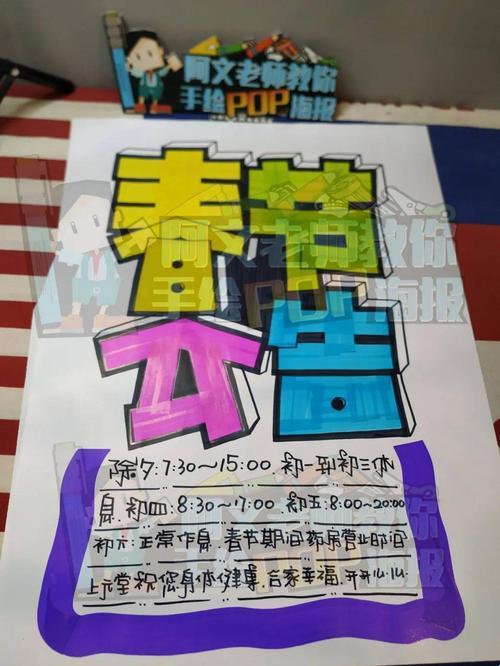 阿文老师教你
手绘POP海报
春节
公告
除夕:7:30～15:00.初一到初三休
息.初四:8:30～17:00.初五:8:00～20:00
初六:正常作息.春节期间药房营业时间
上元堂祝您身体健康.合家幸福.开开心心.
阿文老师教你
手绘POP海报